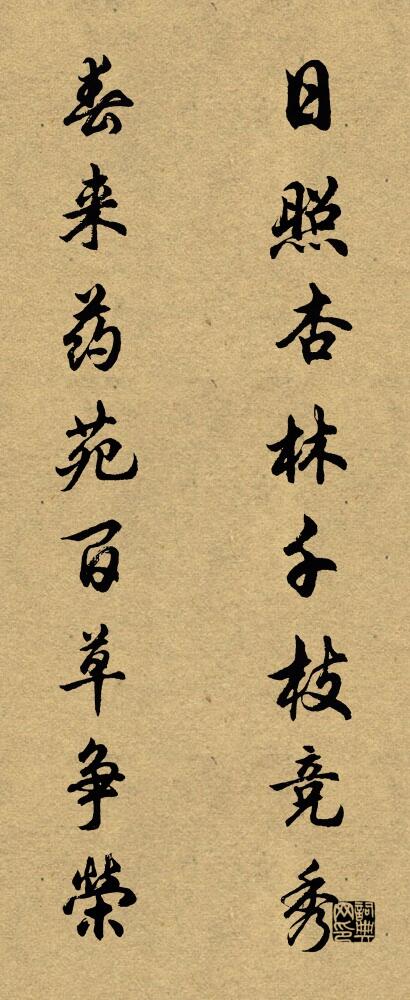 日照杏林千枝竞秀
春来药苑百草争荣
詞典網印